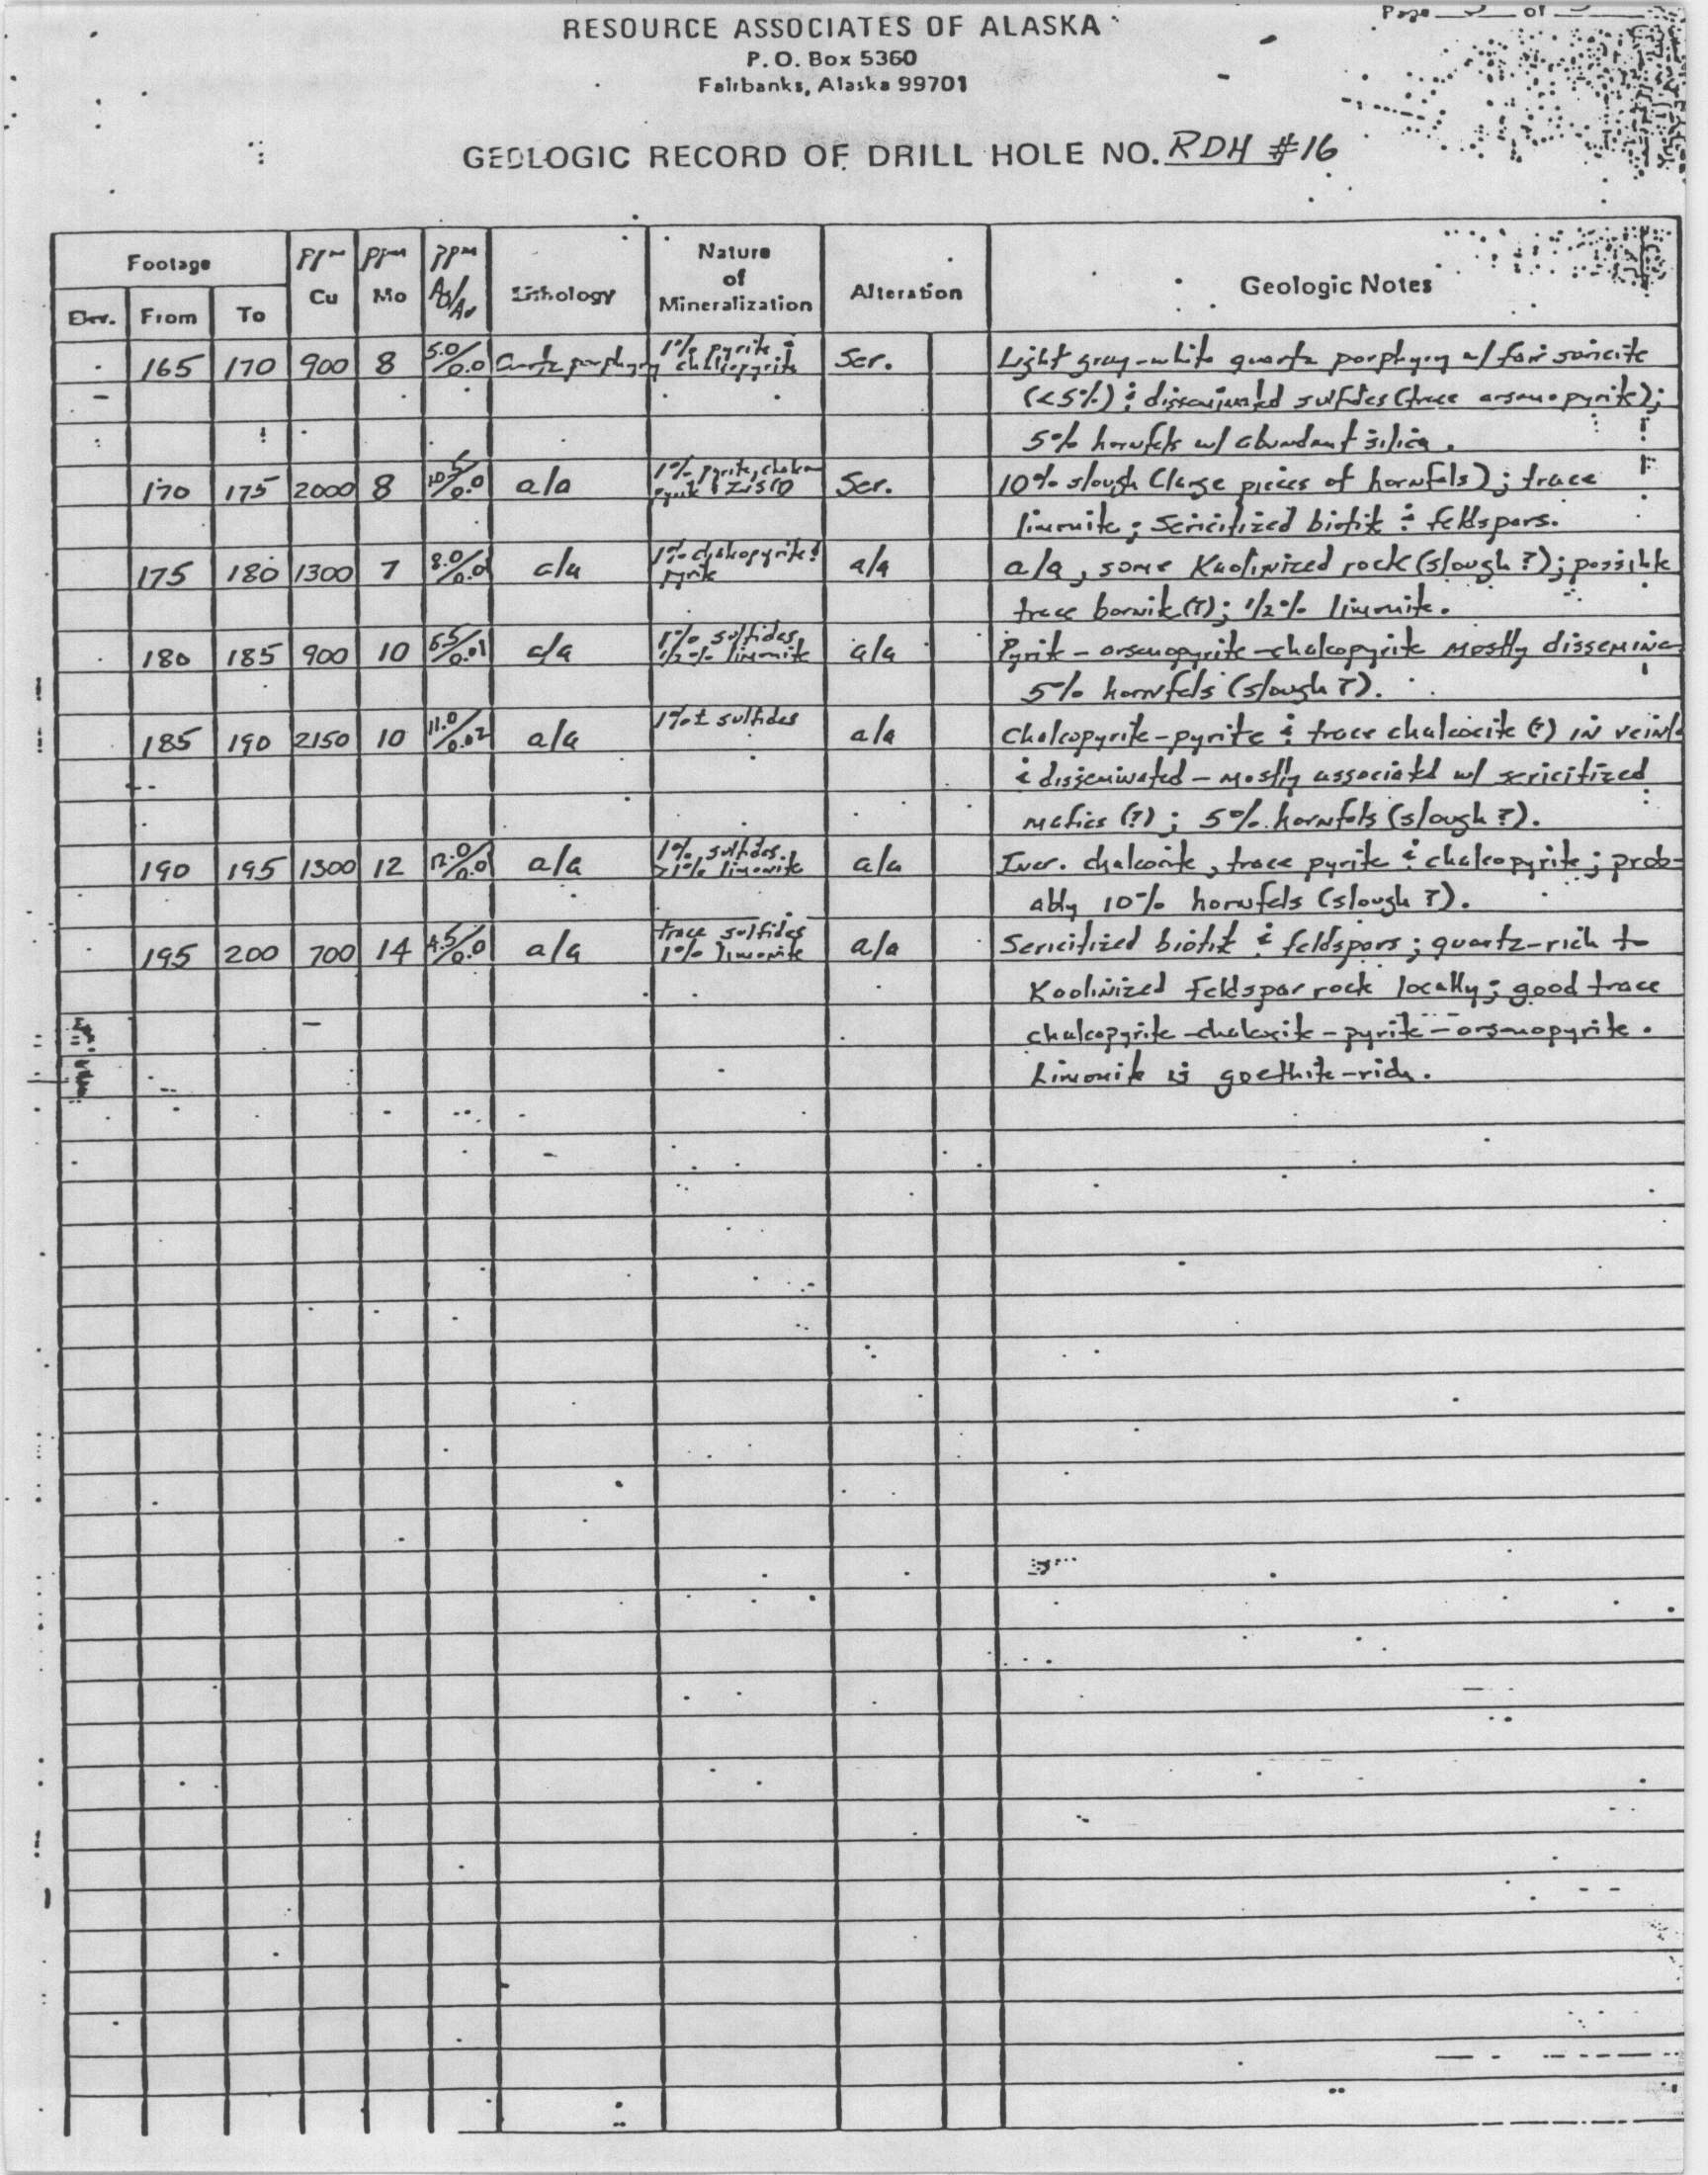 Page of
RESOURCE ASSOCIATES OF ALASKA
P. O. Box 5360
Fairbanks, Alaska 99701
GEOLOGIC RECORD OF DRILL HOLE NO. RDH #16
Footage
Elev. From To
ppm Cu
ppm Mo
ppm Ag/Au
Lithology
Nature of Mineralization
Alteration
Geologic Notes
165 170 900 8 5.0/0.0 Quartz porphyry 1% pyrite & chalcopyrite Ser. Light gray-white quartz porphyry w/ fair sericite
(<5%) & disseminated sulfides (trace arsenopyrite);
5% hornfels w/ abundant silica.
170 175 2000 8 10.5/0.0 a/a 1% pyrite, chalco- pyrite & Ser. 10% slough (large pieces of hornfels); trace
limonite; sericitized biotite & feldspars.
175 180 1300 7 8.0/0.0 a/a 1% chalcopyrite & pyrite a/a a/a, some Kaolinized rock (slough ?); possible
trace bornite (?); 1/2% limonite.
180 185 900 10 6.5/0.01 a/a 1% sulfides, 1/2% limonite a/a Pyrite - arsenopyrite - chalcopyrite mostly dissemina
5% hornfels (slough ?).
185 190 2150 10 11.0/0.02 a/a 1% ± sulfides a/a Chalcopyrite - pyrite & trace chalcocite (?) in veinl
& disseminated - mostly associated w/ sericitized
mafics (?); 5% hornfels (slough ?).
190 195 1300 12 12.0/0.0 a/a 1% sulfides >1% limonite a/a Incr. chalcocite, trace pyrite & chalcopyrite; prob-
ably 10% hornfels (slough ?).
195 200 700 14 4.5/0.0 a/a trace sulfides 1% limonite a/a Sericitized biotite & feldspars; quartz-rich to
Kaolinized Feldspar rock locally; good trace
chalcopyrite - chalcocite - pyrite - arsenopyrite.
Limonite is goethite-rich.